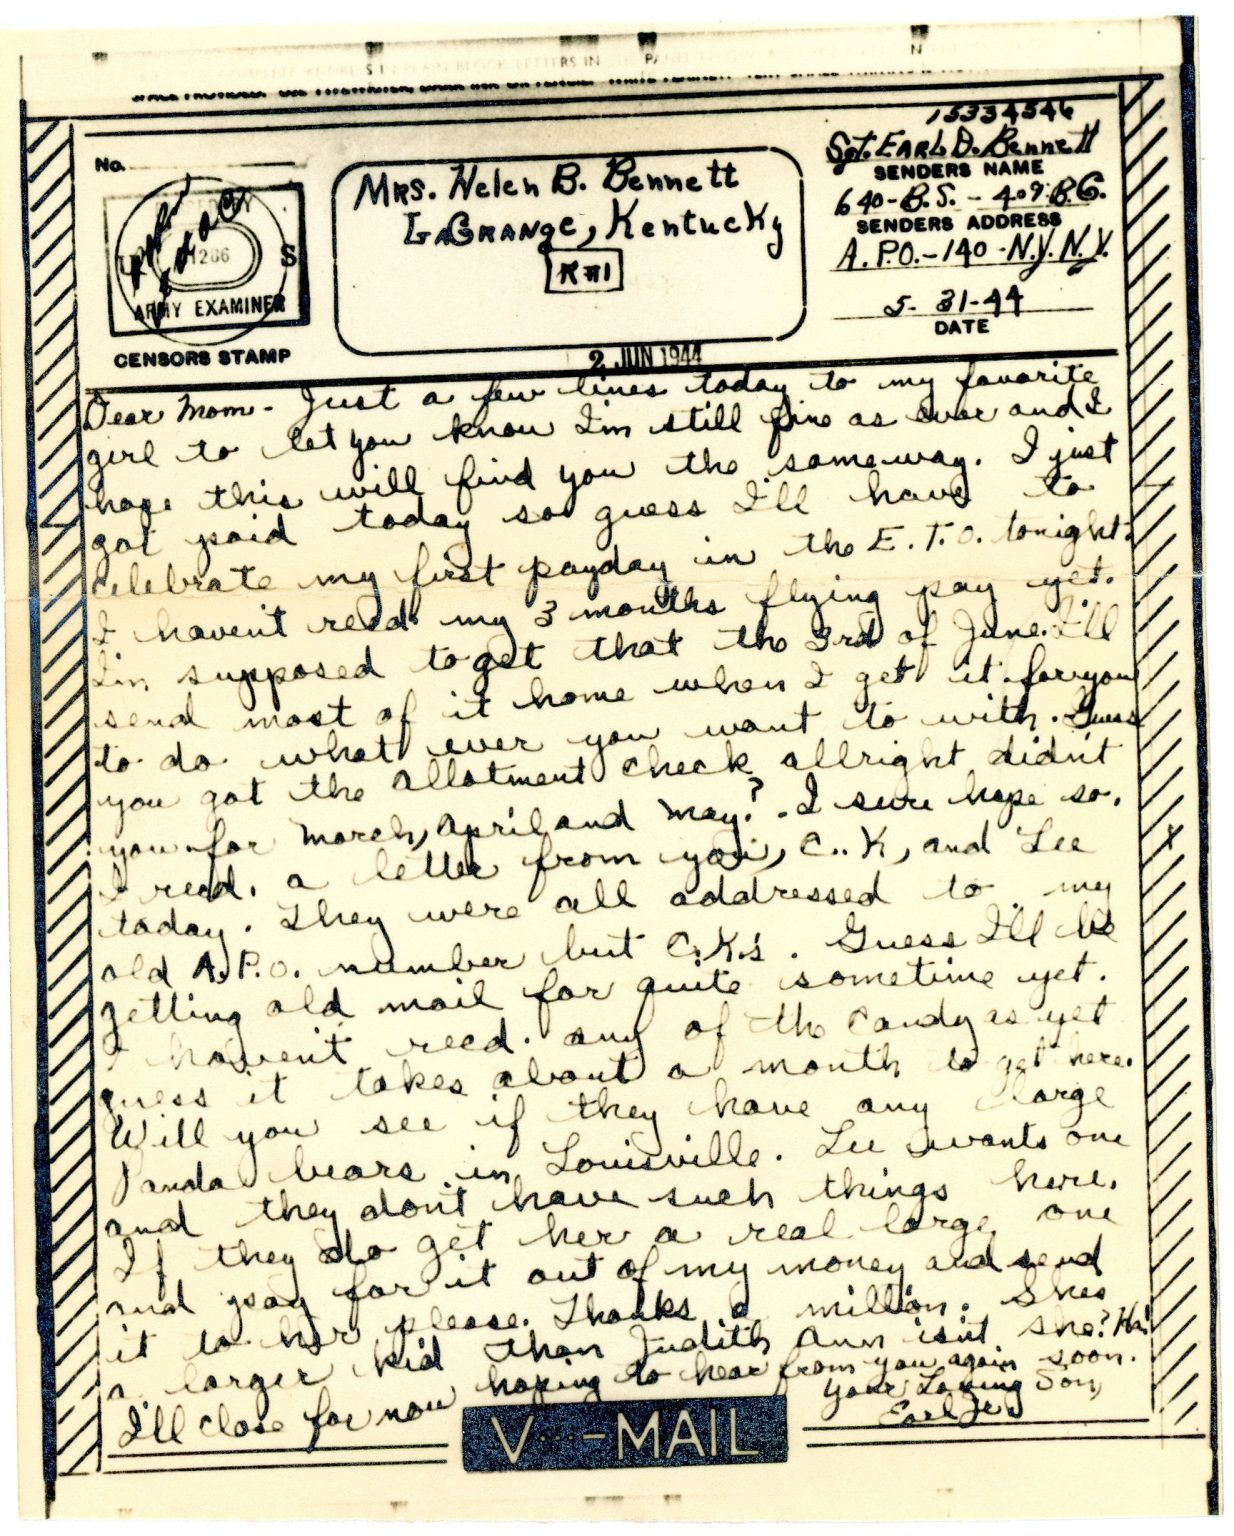 15334546
Sgt. EARL D. Bennett
SENDERS NAME
640-B.S. - 409 B.G.
SENDERS ADDRESS
A.P.O.-140-N.Y. N.Y.
5-31-44
DATE
No.
1266
S
ARMY EXAMINER
CENSORS STAMP
MRS. Helen B. Bennett
LAGRANGE, Kentucky
R#1
2 JUN 1944
Dear Mom - Just a few lines today to my favorite
girl to let you know I'm still fine as ever and I
hope this will find you the same way. I just
got paid today so guess I'll have to
celebrate my first payday in the E.T.O. tonight.
I haven't recd. my 3 months flying pay yet.
I'm supposed to get that the 3rd of June. I'll
send most of it home when I get it for you
to do what ever you want to with. Guess
you got the allotment check allright didn't
you for March, April and May? I sure hope so.
I recd. a letter from you, C.K, and Lee
today. They were all addressed to my
old A.P.O. number but C.K.'s. Guess I'll be
getting old mail for quite sometime yet.
I haven't recd. any of the candy as yet
guess it takes about a month to get here.
Will you see if they have any large
Panda bears in Louisville. Lee wants one
and they don't have such things here.
If they do get her a real large one
and pay for it out of my money and send
it to her please. Thanks a million. Shes
a larger kid than Judith Ann isn't she? Ha!
I'll close for now hoping to hear from you again soon.
Your Loving Son,
Earl Jr.
V···-MAIL